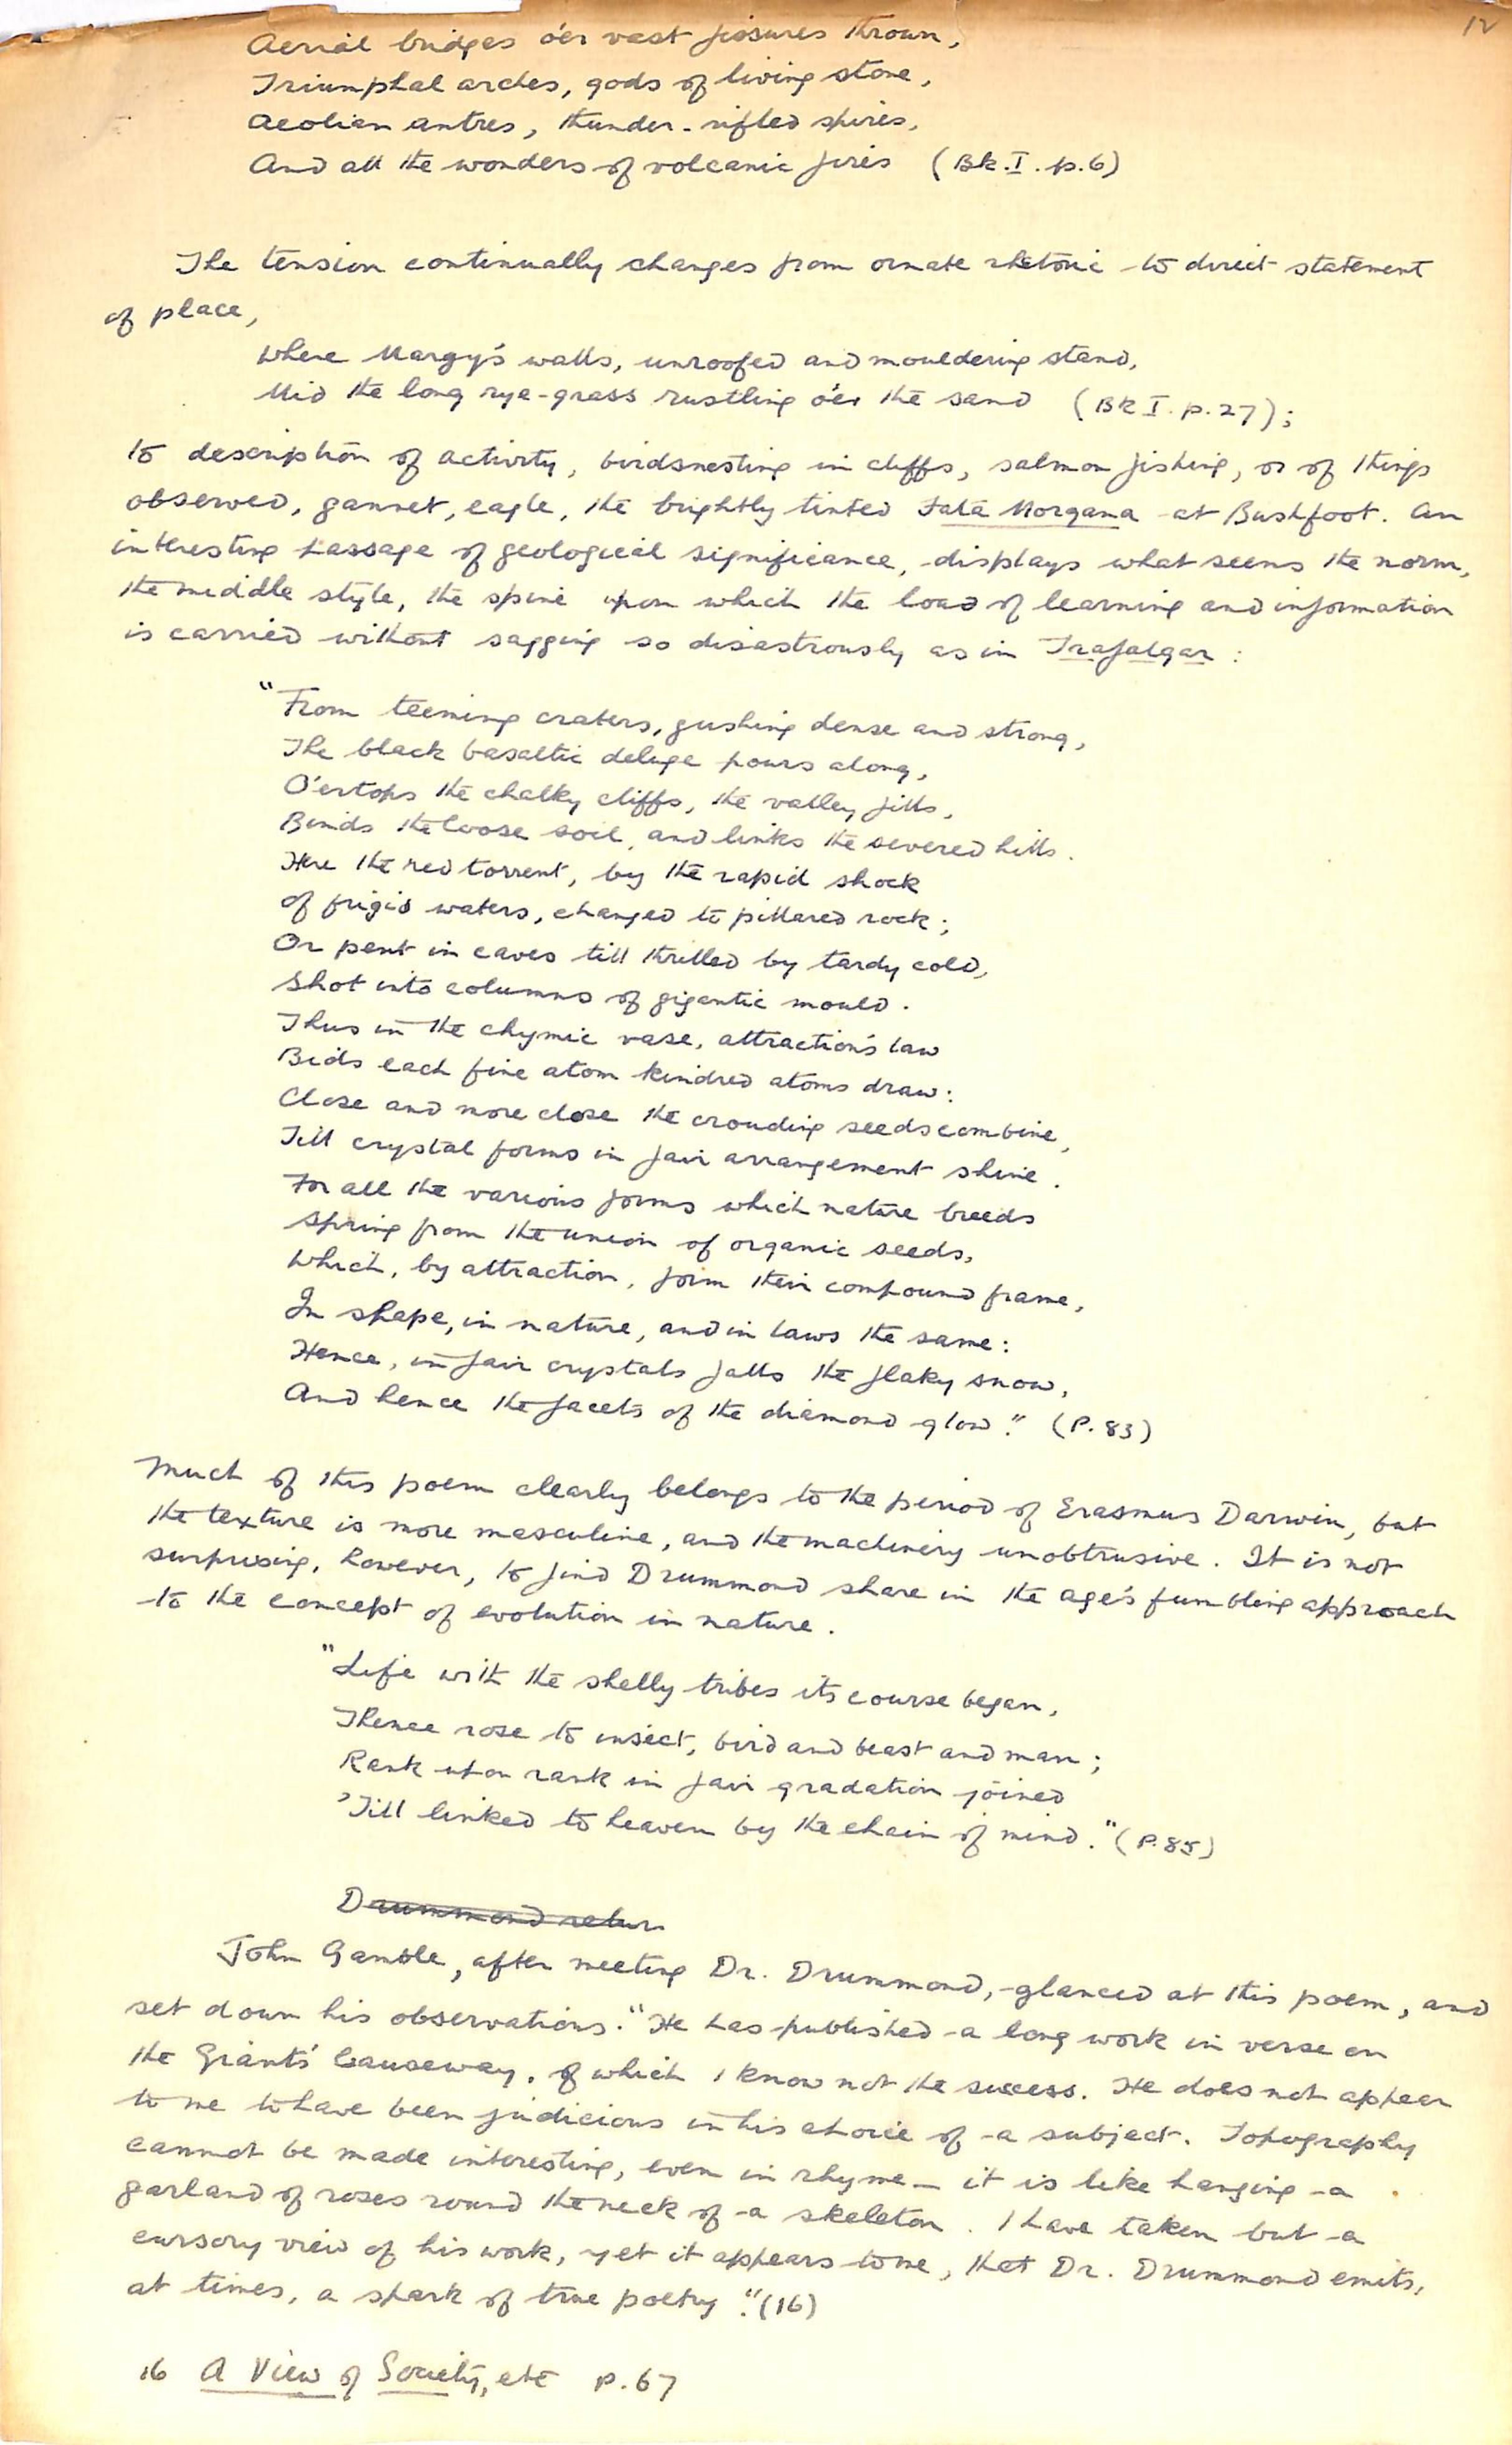 12
Aerial bridges o'er vast fissures thrown,
Triumphal arches, gods of living stone,
Aeolian antres, thunder-rifted spires,
And all the wonders of volcanic fires (Bk. I. p. 6)
The tension continually changes from ornate rhetoric to direct statement
of place,
Where Margy's walls, unroofed and mouldering stand,
Mid the long rye-grass rustling o'er the sand (Bk I. p. 27);
to description of activity, birdsnesting in cliffs, salmon fishing, or of things
observed, gannet, eagle, the brightly tinted Fata Morgana at Bushfoot. An
interesting passage of geological significance, displays what seems the norm,
the middle style, the spine upon which the load of learning and information
is carried without sagging so disastrously as in Trafalgar :
"From teeming craters, gushing dense and strong,
The black basaltic deluge pours along,
O'ertops the chalky cliffs, the valley fills,
Binds the loose soil, and links the severed hills.
Here the red torrent, by the rapid shock
of frigid waters, changed to pillared rock;
Or pent in caves till thrilled by tardy cold,
Shot into columns of gigantic mould.
Thus in the chymic vase, attraction's law
Bids each fine atom kindred atoms draw:
Close and more close the crouding seeds combine,
Till crystal forms in fair arrangement shine.
For all the various forms which nature breeds
Spring from the union of organic seeds,
Which, by attraction, form their compound frame,
In shape, in nature, and in laws the same:
Hence, in fair crystals falls the flaky snow,
And hence the facets of the diamond glow." (P. 83)
Much of this poem clearly belongs to the period of Erasmus Darwin, but
the texture is more masculine, and the machinery unobtrusive. It is not
surprising, however, to find Drummond share in the age's fumbling approach
to the concept of evolution in nature.
"Life with the shelly tribes its course began,
Thence rose to insect, bird and beast and man;
Rank upon rank in fair gradation joined
'Till linked to heaven by the chain of mind." (P. 85)
Drummond retur
John Gamble, after meeting Dr. Drummond, glanced at this poem, and
set down his observations. "He has published a long work in verse on
the Giants' Causeway, of which I know not the success. He does not appear
to me to have been judicious in his choice of a subject. Topography
cannot be made interesting, even in rhyme – it is like hanging a
garland of roses round the neck of a skeleton. I have taken but a
cursory view of his work, yet it appears to me, that Dr. Drummond emits,
at times, a spark of true poetry." (16)
16 A View of Society, etc p. 67